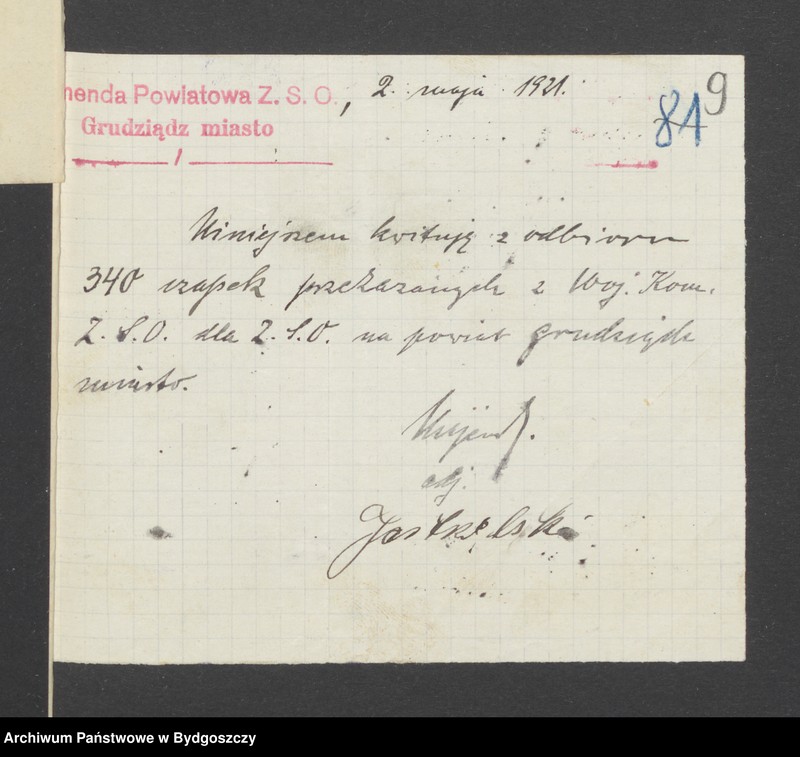 menda Powiatowa Z. S. O., 2. maja 1921.
Grudziądz miasto
9
81
Niniejszem kwituję z odbioru
340 czapek przekazanych z Woj. Kom.
Z. S. O. dla Z. S. O. na powiat Grudziądz
miasto.
adj.
Archiwum Państwowe w Bydgoszczy